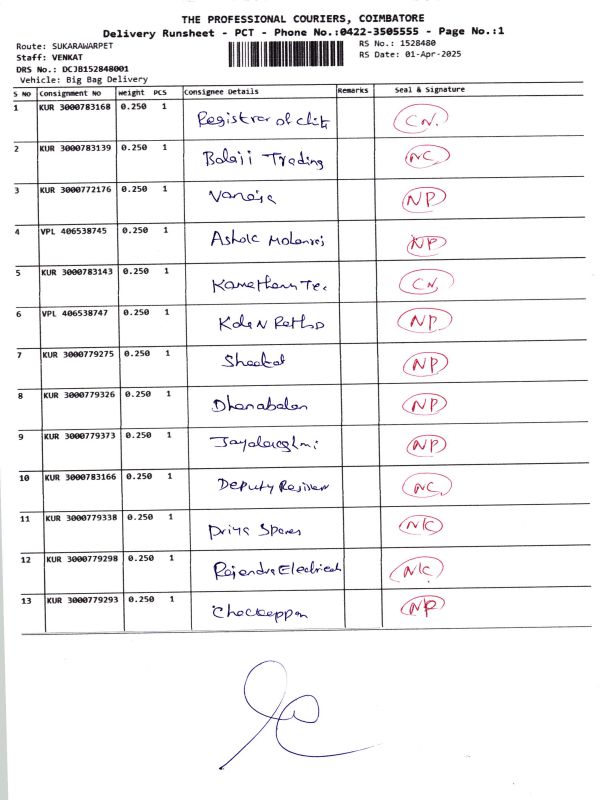 THE PROFESSIONAL COURIERS, COIMBATORE
Delivery Runsheet - PCT - Phone No.:0422-3505555 - Page No.:1
Route: SUKARAWARPET
RS No.: 1528480
Staff: VENKAT
RS Date: 01-Apr-2025
DRS No.: DCJB152848001
Vehicle: Big Bag Delivery
S No Consignment No Weight PCS Consignee Details Remarks Seal & Signature
1 KUR 3000783168 0.250 1 Registrar of chit CN.
2 KUR 3000783139 0.250 1 Balaji Trading NC
3 KUR 3000772176 0.250 1 Vanaja NP
4 VPL 406538745 0.250 1 Ashok NP
5 KUR 3000783143 0.250 1 CN,
6 VPL 406538747 0.250 1 NP
7 KUR 3000779275 0.250 1 Sheetal NP
8 KUR 3000779326 0.250 1 Dhanabalan NP
9 KUR 3000779373 0.250 1 NP
10 KUR 3000783166 0.250 1 Deputy NC,
11 KUR 3000779338 0.250 1 Priya Spares
12 KUR 3000779298 0.250 1 Rajendra Electrical
13 KUR 3000779293 0.250 1 NP